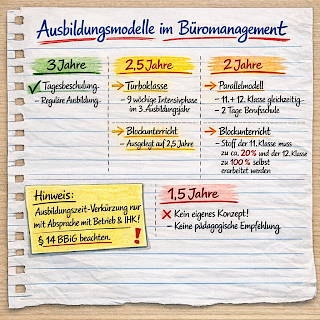 Ausbildungsmodelle im Büromanagement
3 Jahre
Tagesbeschulung
– Reguläre Ausbildung.
2,5 Jahre
Turboklasse
– 9 wöchige Intensivphase
im 3. Ausbildungsjahr
Blockunterricht
– Ausgelegt auf 2,5 Jahre
2 Jahre
Parallelmodell
– 11. + 12. Klasse gleichzeitig
– 2 Tage Berufschule
Blockunterricht
– Stoff der 11. Klasse muss
zu ca. 20% und der 12. Klasse
zu 100% selbst
erarbeitet werden
Hinweis:
Ausbildungszeit-Verkürzung nur
mit Absprache mit Betrieb & IHK!
§ 14 BBiG beachten. !
1,5 Jahre
Kein eigenes Konzept!
– Keine pädagogische Empfehlung.